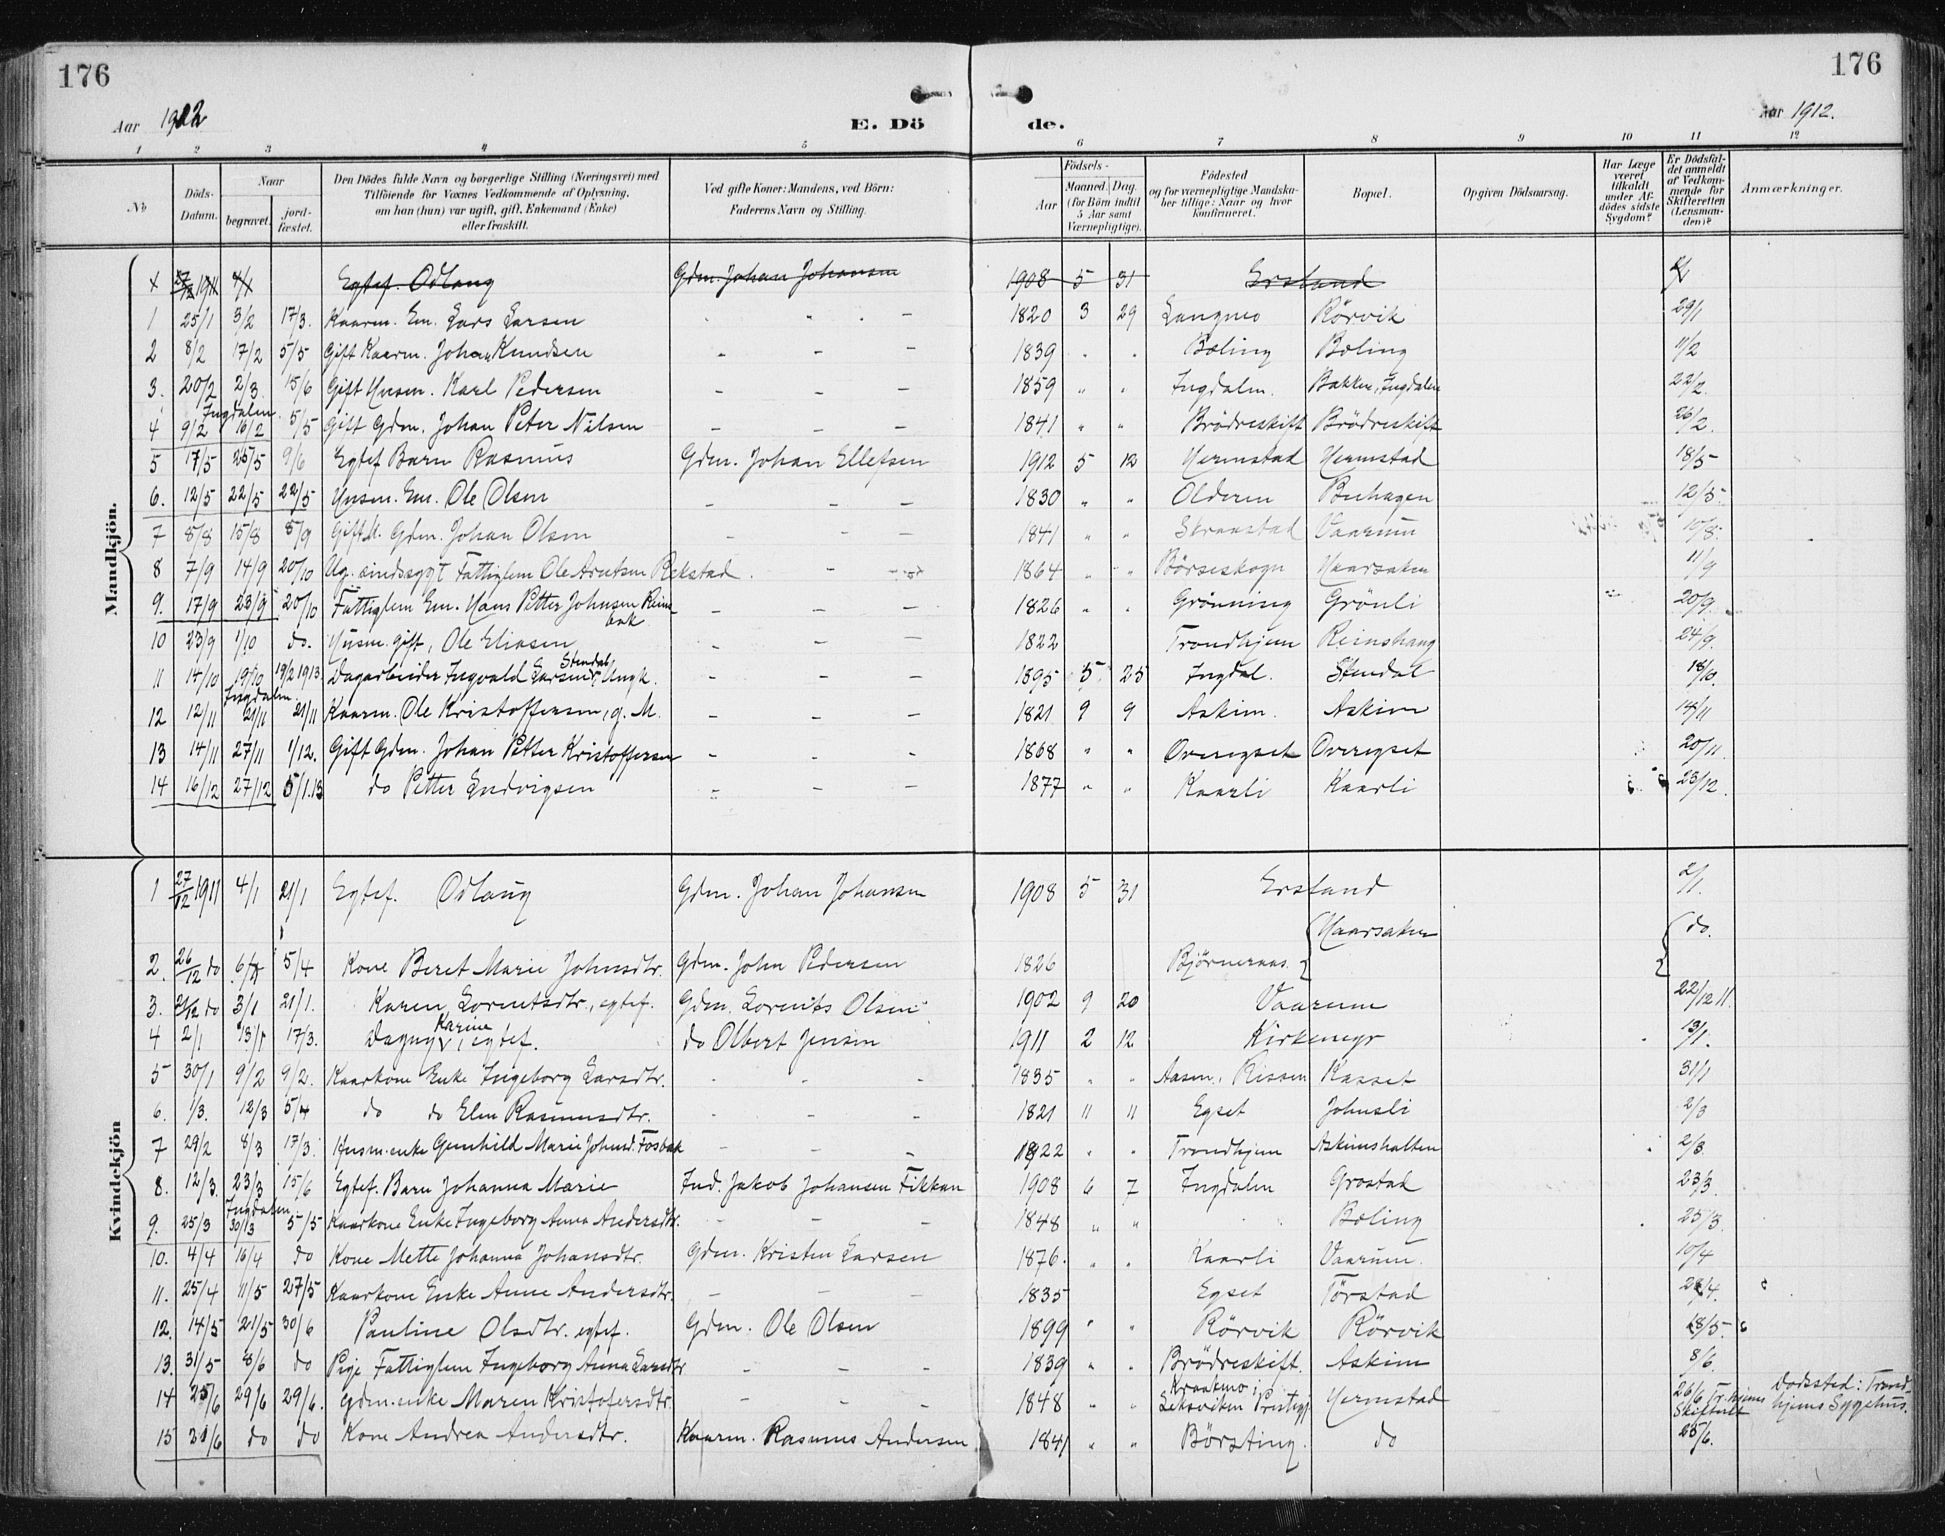 176
176
Aar 1912
E. Dö
de.
Aar 1912.
1 2 3 4 5 6 7 8 9 10 11 12
No
Döds-Datum.
Naar
begravet.
jord-fæstet.
Den Dödes fulde Navn og borgerlige Stilling (Næringsvei) med
Tilföiende for Voxnes Vedkommende af Oplysning,
om han (hun) var ugift, gift, Enkemand (Enke)
eller fraskilt.
Ved gifte Koner: Mandens, ved Börn:
Faderens Navn og Stilling.
Födsels-
Aar
Maaned. Dag.
(for Börn indtil
5 Aar samt
Værnepligtige).
Födested
og for værnepligtige Mandska-
ber tillige: Naar og hvor
konfirmeret.
Bopæl.
Opgiven Dödsaarsag.
Har Læge
været
tilkaldt
under Af-
dödes sidste
Sygdom?
Er Dödsfal-
det anmeldt
af Vedkom-
mende for
Skifteretten
(Lensman-
den)?
Anmærkninger.
Mandkjön.
x 27/12 1911 4/1 Egtef. Odlaug Gdm. Johan Johansen 1908 5 31 Erstand
1 25/1 3/2 17/3. Kaarm. Em. Lars Larsen 1820 3 29 Langmo Rörvik 29/1
2 8/2 17/2 5/5 Gift Kaarm. Johan Knudsen 1839 " " Boling Boling 11/2
3. 20/2 2/3. 15/6 Gift Husm. Karl Pedersen 1859 " " Ingdalen. Bakken, Ingdalen 22/2.
Ingdalen.
4 9/2 16/2 5/5 Gift Gdm. Johan Peter Nilsen 1841 " " Brödreskift Brödreskift 26/2.
5 17/5 25/5 9/6 Egtef Barn Rasmus Gdm. Johan Ellefsen 1912 5 12 Hermstad Hermstad 18/5
6. 12/5 22/5 22/5 Husm. Em. Ole Olsen 1830 " " Olderen Buhagen 12/5.
7 8/8 15/8 8/9 Gift M. Gdm. Johan Olsen 1841 " " Straastad Vaarum 10/8.
8 7/9 14/9 20/10 Ug. sindssygt Fattiglem Ole Arntsen Rekstad. 1864 " " Börseskogn Haarsaken 11/9
9. 17/9 23/9 20/10 Fattiglem Em. Hans Petter Johnsen Reins-
bak 1826 " " Grönning Grönli 20/9.
10 23/9 1/10 do. Husm. gift, Ole Eliasen 1822 Trondhjem Reinshaug 24/9.
11 14/10 19/10 19/2 1913. Dagarbeider Ingvald Larsen Stendal, Ungk. 1895 5 25 Ingdal. Stendal 18/10.
Ingdalen.
12 12/11 21/11 21/11 Kaarm. Ole Kristoffersen, g. M. 1821 9 9 Askim. Askim 14/11
13 14/11 27/11 1/12. Gift Gdm. Johan Petter Kristoffersen 1868 " " Overegset Overegset 20/11.
14 16/12 27/12 5/1.13 do Petter Ludvigsen 1877 " " Kaarli Kaarli 23/12.
Kvindekjön
1 27/12 1911 4/1 21/1 Egtef. Odlaug Gdm. Johan Johansen 1908 5 31 Erstand 2/1.
2. 26/12 do 6/1 5/4 Kone Beret Marie Johnsdtr. Gdm. John Pedersen 1826 Björneraas. Haarsaken do.
3. 21/12 do 3/1 21/1. Karen Lorntsdtr., egtef. Gdm. Lornts Olsen 1902 9 20 Vaarum 22/12 11.
4 2/1 13/1 17/3. Dagny Karine, egtef. do Olbert Jensen 1911 2 12 Kirkemyr 13/1.
5 30/1 9/2 9/2. Kaarkone Enke Ingeborg Larsdtr. 1835 " " Aasen, Rissen Kasset 31/1
6. 1/3. 12/3 5/4 do do Elen Rasmusdtr. 1821 11 11 Egset Johnsli 2/3
7 29/2 8/3 17/3. Husm.enke Gunhild Marie Johnsd. Fosbak 1822 " " Trondhjem Askimshalten 2/3.
8. 12/3. 23/3 15/6 Egtef. Barn Johanna Marie Ind. Jakob Johansen Fikkan 1908 6 7 Ingdalen Grostad 23/3.
Ingdalen
9. 25/3 30/3 5/5 Kaarkone Enke Ingeborg Anna Andersdtr. 1848 " " Boling 25/3.
10. 4/4 16/4 do Kone Mette Johanna Johansdtr. Gdm. Kristen Larsen 1876. " " Kaarli Vaarum. 10/4
11. 25/4 11/5 27/5 Kaarkone Enke Anne Andersdtr. 1835 Egset Törstad 28/4.
12. 14/5 21/5 30/6 Pauline Olsdtr. egtef. Gdm. Ole Olsen 1899 " " Rörvik Rörvik 18/5.
13. 31/5 8/6 do Pige Fattiglem Ingeborg Anna Larsdtr 1839 " " Brödreskift. Askim 8/6.
14 25/6 29/6 29/6. Gdm.enke Maren Kristofersdtr. 1848 " " Kraakmo i
Leksviken Prestegj Hermstad 26/6 Tr.hjems
Skifteret Dödssted: Trond-
hjems Sygehus.
15 21/6 do do Kone Andrea Andersdtr. Kaarm. Rasmus Andersen 1841 " " Börsting. do 25/6.